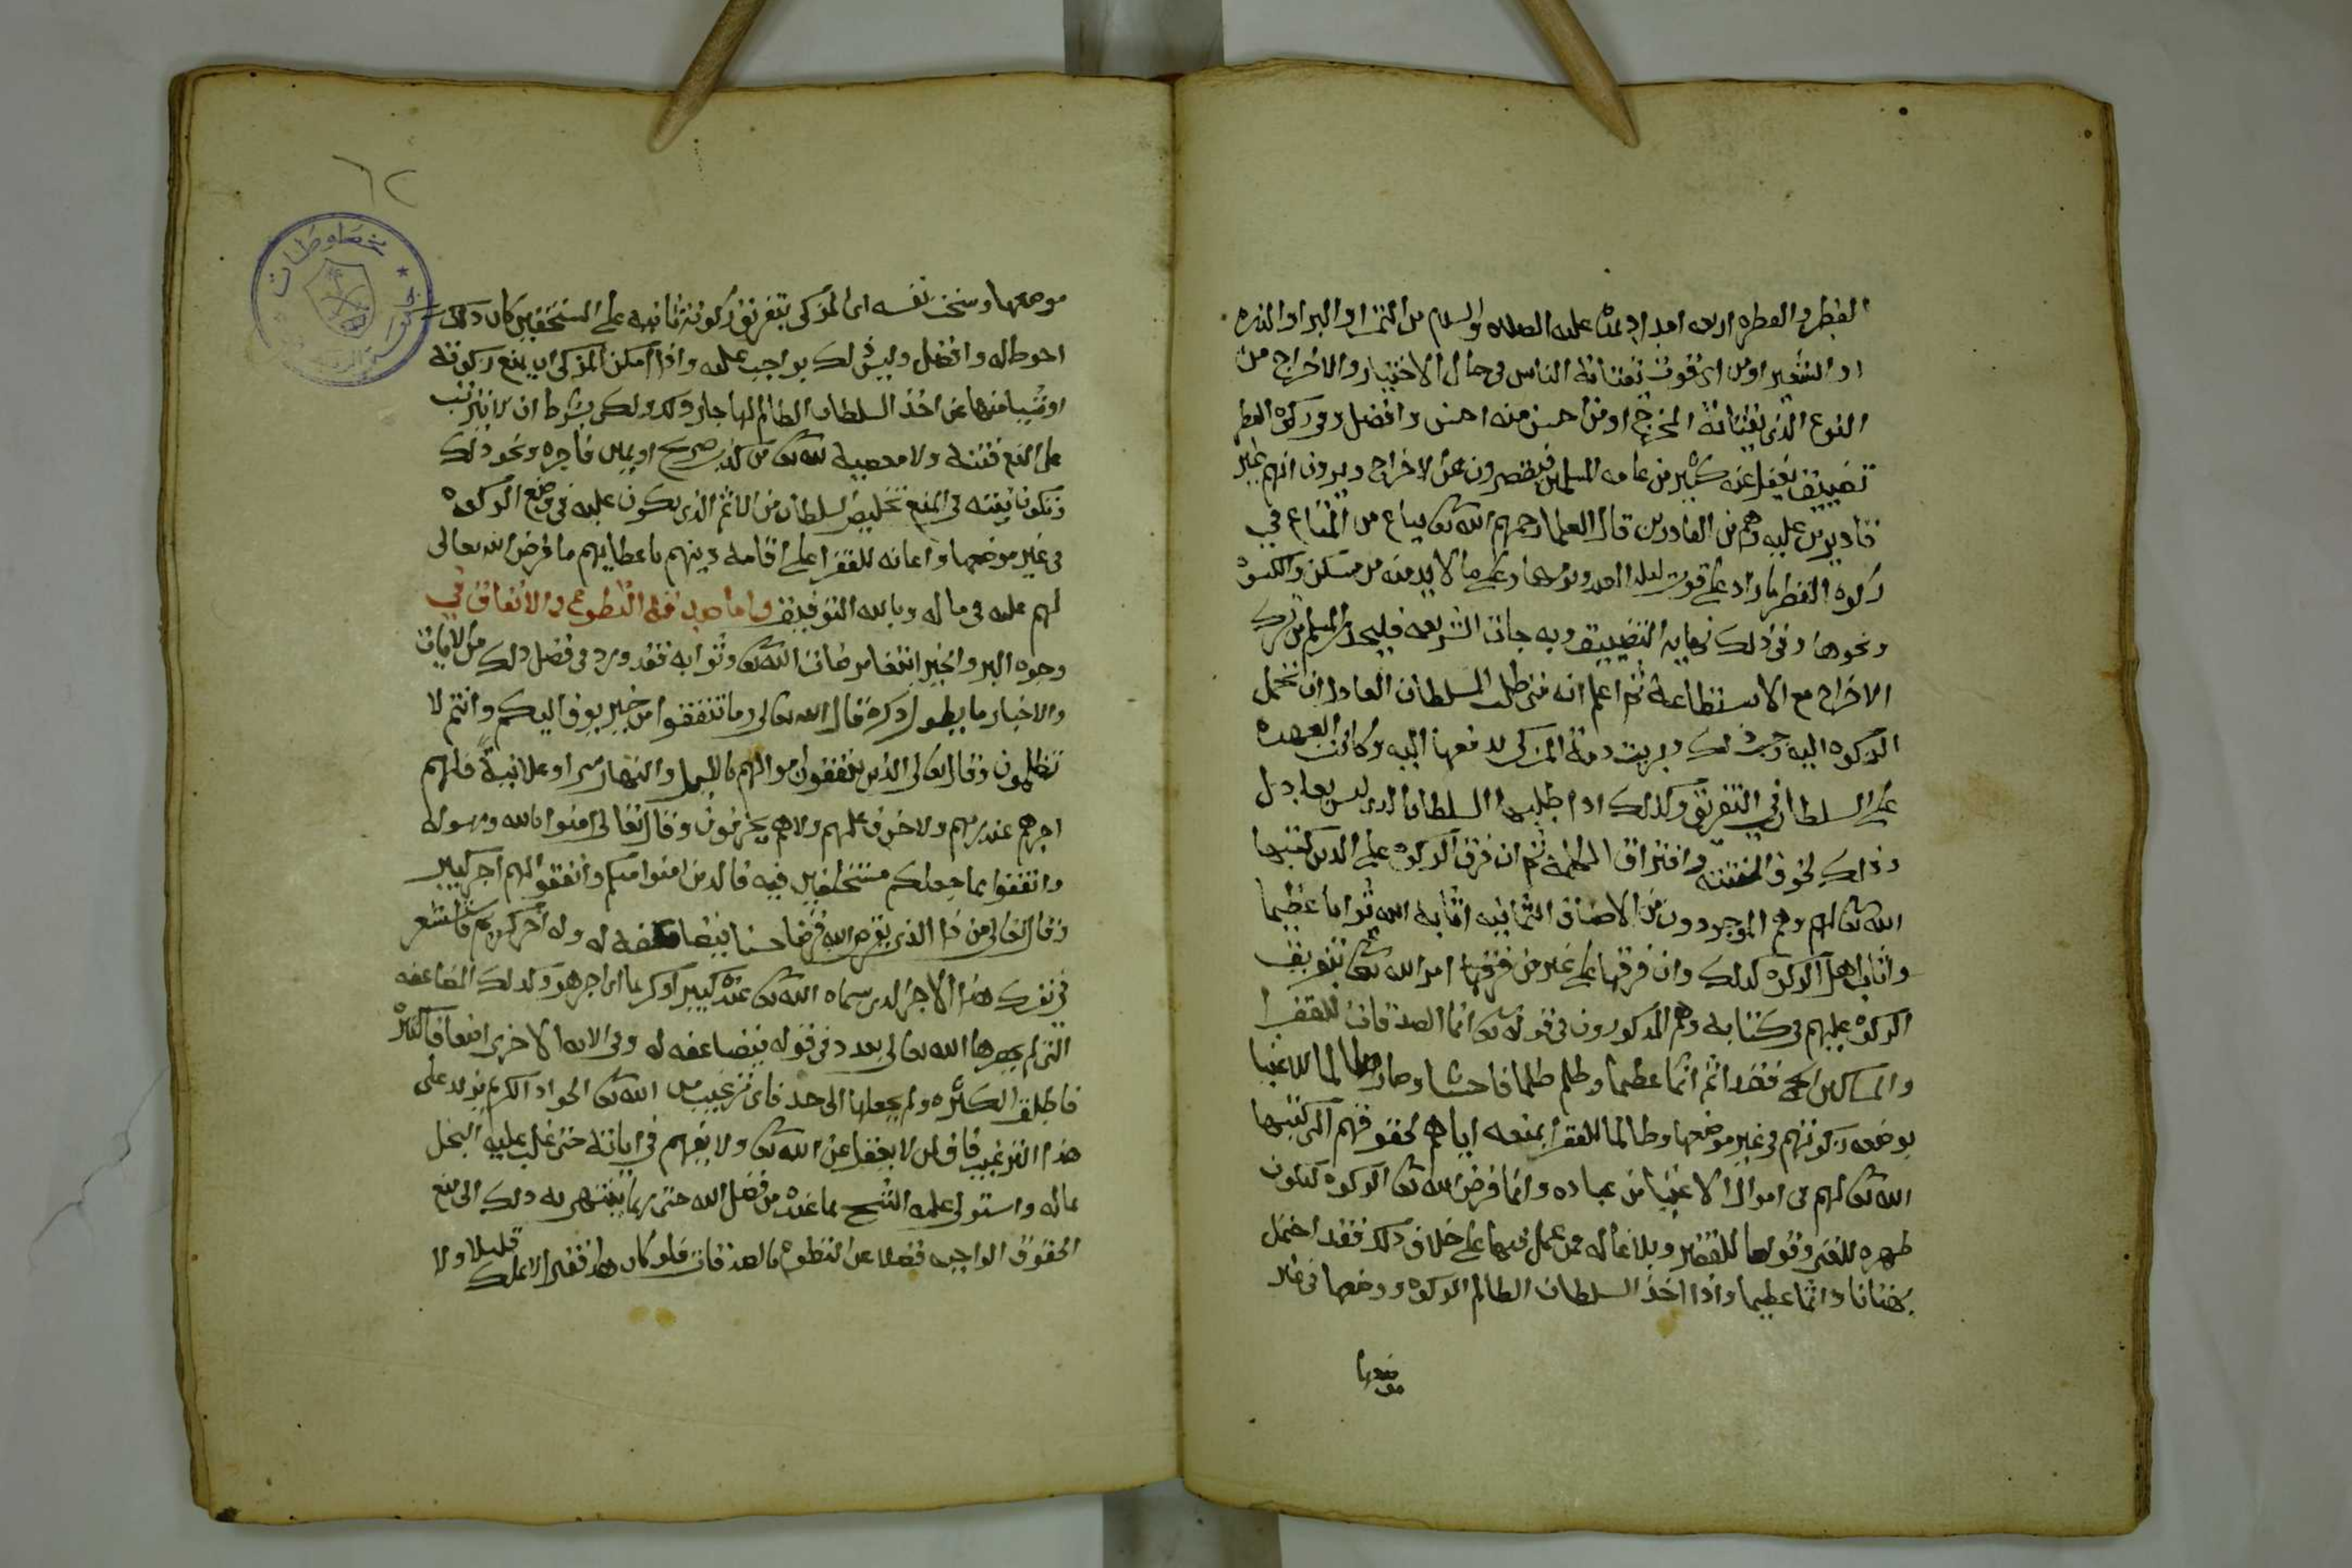 الفطر والفطره اربعه امداد بمده عليه الصلاه والسلام من التمر او البر او الذره
او الشعير او من اى قوت تقتاته الناس فى حال الاختيار والاخراج من
النوع الذى يقتاته المخرج او من احسن منه احسن وافضل وفى زكوة الفطر
تضييق يغفل عنه كثير من عامه المسلمين فيقصرون عن الاخراج ويرون انهم غير
قادرين عليه وهم من القادرين قال العلما رحمهم الله تعالى يباع من المتاع فى
زكوه الفطر ما زاد على قوت ليله العيد ويومها وعلى ما لا بد منه من مسكن وكسوه
ونحوها وفى ذلك نهايه التضييق وبه جات الشريعه فليحذر المسلم من ترك
الاخراج مع الاستطاعة ثم اعلم انه متى طلب السلطان العادل ان تحمل
الزكوه اليه وجب ذلك وبريت ذمة المزكى بدفعها اليه وكانت العهده
على السلطان فى التفريق وكذلك اذا طلبها السلطان الذى ليس بعادل
وذلك لخوف الفتنه وافتراق الكلمه ثم ان فرق الزكوه على الذين كتبها
الله تعالى لهم وهم الموجودون من الاصناف الثمانيه اثابه الله ثوابا عظيما
واثاب اهل الزكوه كذلك وان فرقها على غير من فرقها امر الله تعالى بتفريق
الزكوه عليهم فى كتابه وهم المذكورون فى قوله تعالى انما الصدقات للفقرا
والمساكين الخ فقد اثم اثما عظيما وظلم ظلما فاحشا وصار ظالما للاغنيا
بوضعه زكوتهم فى غير موضعها وظالما للفقرا بمنعه اياهم لحقوقهم التى كتبها
الله تعالى لهم فى اموال الاغنيا من عباده وانما فرض الله تعالى الزكوه لتكون
طهره للغنى وقوتا للفقير وبلاغا له فمن عمل فيها على خلاف ذلك فقد احتمل
بهتانا واثما عظيما واذا اخذ السلطان الظالم الزكوه ووضعها فى غير
موضعها
٦٢
موضعها وسخت نفسه اى المزكى بتفريق زكوته ثانيه على المستحقين كان ذلك
احوط له وافضل وليس ذلك بواجب عليه واذا امكن المزكى ان يمنع زكوته
او شيا منها عن اخذ السلطان الظالم لها جاز ذلك ولكن بشرط ان لا يترتب
على المنع فتنة ولا معصية لله تعالى من كذب صريح او يمين فاجره ونحو ذلك
وتكون نيته فى المنع تخليص السلطان من الاثم الذى يكون عليه فى وضع الزكوه
فى غير موضعها واعانه للفقرا على اقامة دينهم باعطايهم ما فرض الله تعالى
لهم عليه فى ماله وبالله التوفيق واما صدقة التطوع والانفاق فى
وجوه البر والخير ابتغا مرضات الله تعالى وثوابه فقد ورد فى فضل ذلك من الايات
والاخبار ما يطول ذكره قال الله تعالى وما تنفقوا من خير يوف اليكم وانتم لا
تظلمون وقال تعالى الذين ينفقون اموالهم بالليل والنهار سرا وعلانية فلهم
اجرهم عند ربهم ولا خوف عليهم ولا هم يحزنون وقال تعالى امنوا بالله ورسوله
وانفقوا مما جعلكم مستخلفين فيه فالذين امنوا منكم وانفقوا لهم اجر كبير
وقال تعالى من ذا الذى يقرض الله قرضا حسنا فيضاعفه له وله اجر كريم فاستشعر
فى نفسك هذا الاجر الذى سماه الله تعالى عنده كبير او كريما اى اجر هو وكذلك المضاعفه
التى لم يحدها الله تعالى بعدد فى قوله فيضاعفه له وفى الايه الاخرى اضعافا كثيره
فاطلق الكثره ولم يجعلها الى حد فاى ترغيب من الله تعالى الجواد الكريم يزيد على
هذا الترغيب فاف لمن لا يعقل عن الله تعالى ولا يفهم فى اياته حتى غلب عليه البخل
بماله واستولى عليه الشح بما عنده من فضل الله حتى ربما ينتهى به ذلك الى منع
الحقوق الواجبه فضلا عن التطوع بالصدقات فلو كان هذا فقيرا لا يملك قليلا ولا